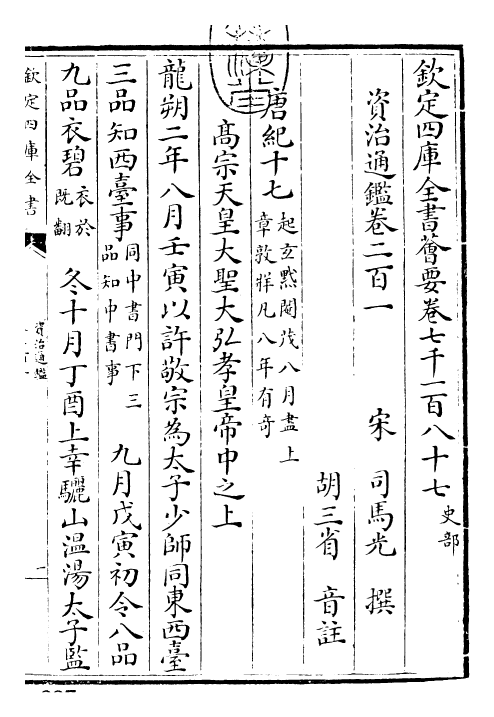 欽定四庫全書薈要卷七千一百八十七 史部
資治通鑑卷二百一
宋 司馬光 撰
胡三省 音註
唐紀十七 起玄黓閹茂八月盡上章敦牂凡八年有奇
高宗天皇大聖大弘孝皇帝中之上
龍朔二年八月壬寅以許敬宗為太子少師同東西臺
三品知西臺事 同中書門下三品知中書事 九月戊寅初令八品
九品衣碧 衣於既翻 冬十月丁酉上幸驪山温湯太子監
欽定四庫全書
資治通鑑